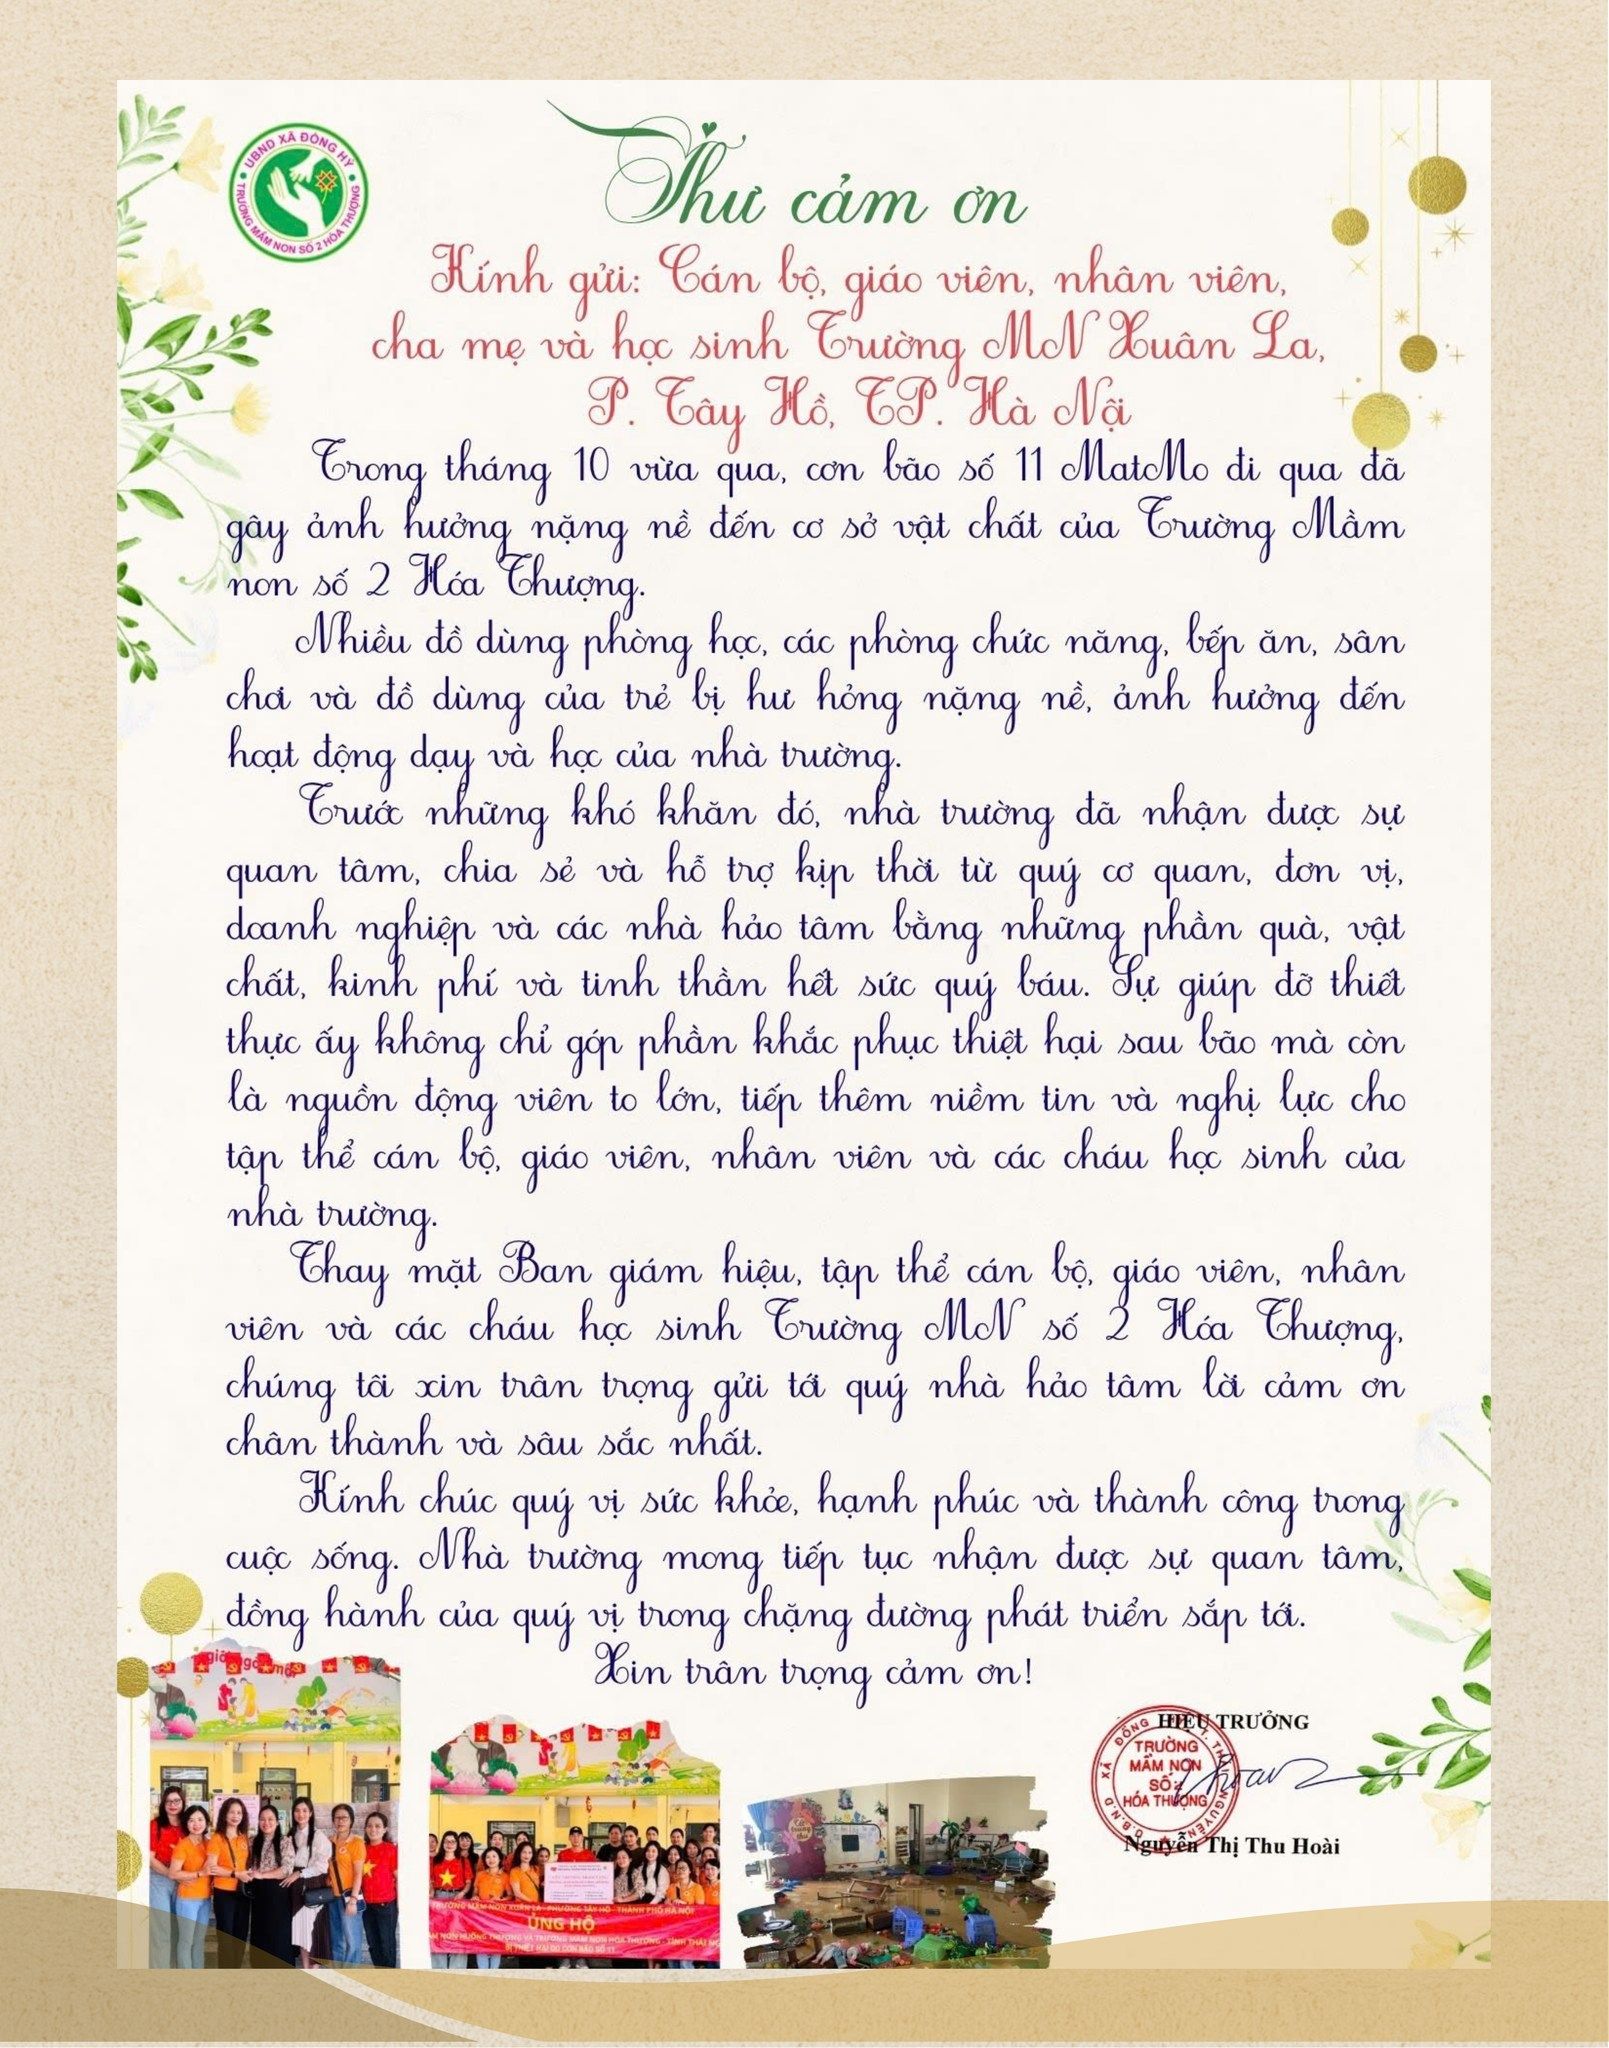 UBND XÃ ĐỒNG HỶ
TRƯỜNG MẦM NON SỐ 2 HÓA THƯỢNG
Thư cảm ơn
Kính gửi: Cán bộ, giáo viên, nhân viên,
cha mẹ và học sinh Trường MN Xuân La,
P. Tây Hồ, TP. Hà Nội
Trong tháng 10 vừa qua, cơn bão số 11 MatMo đi qua đã
gây ảnh hưởng nặng nề đến cơ sở vật chất của Trường Mầm
non số 2 Hóa Thượng.
Nhiều đồ dùng phòng học, các phòng chức năng, bếp ăn, sân
chơi và đồ dùng của trẻ bị hư hỏng nặng nề, ảnh hưởng đến
hoạt động dạy và học của nhà trường.
Trước những khó khăn đó, nhà trường đã nhận được sự
quan tâm, chia sẻ và hỗ trợ kịp thời từ quý cơ quan, đơn vị,
doanh nghiệp và các nhà hảo tâm bằng những phần quà, vật
chất, kinh phí và tinh thần hết sức quý báu. Sự giúp đỡ thiết
thực ấy không chỉ góp phần khắc phục thiệt hại sau bão mà còn
là nguồn động viên to lớn, tiếp thêm niềm tin và nghị lực cho
tập thể cán bộ, giáo viên, nhân viên và các cháu học sinh của
nhà trường.
Thay mặt Ban giám hiệu, tập thể cán bộ, giáo viên, nhân
viên và các cháu học sinh Trường MN số 2 Hóa Thượng,
chúng tôi xin trân trọng gửi tới quý nhà hảo tâm lời cảm ơn
chân thành và sâu sắc nhất.
Kính chúc quý vị sức khỏe, hạnh phúc và thành công trong
cuộc sống. Nhà trường mong tiếp tục nhận được sự quan tâm,
đồng hành của quý vị trong chặng đường phát triển sắp tới.
Xin trân trọng cảm ơn!
HIỆU TRƯỞNG
TRƯỜNG
MẦM NON
SỐ 2
HÓA THƯỢNG
Nguyễn Thị Thu Hoài
TRƯỜNG MẦM NON XUÂN LA - PHƯỜNG TÂY HỒ - THÀNH PHỐ HÀ NỘI
ỦNG HỘ
NON HUỐNG THƯỢNG VÀ TRƯỜNG MẦM NON HÓA THƯỢNG - TỈNH THÁI
BỊ THIỆT HẠI DO CƠN BÃO SỐ 11